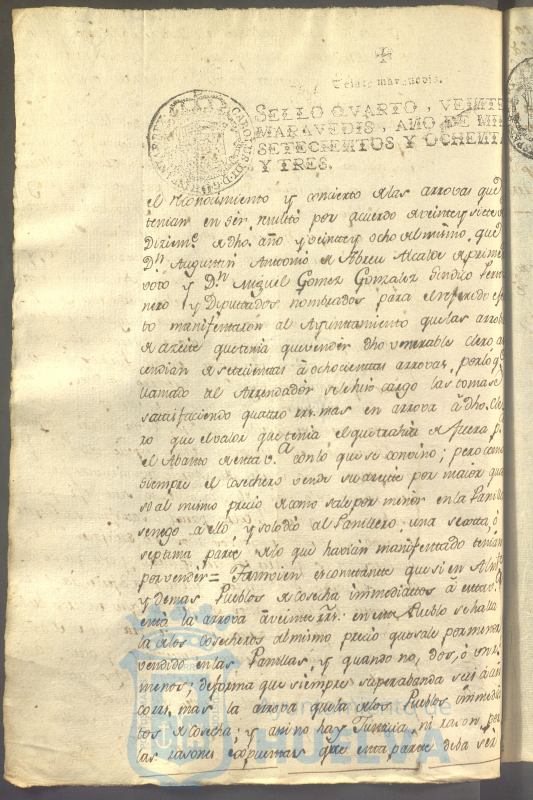 Veinte maravedis.
SELLO QVARTO, VEINTE
MARAVEDIS, AÑO DE MIL
SETECIENTOS Y OCHENTA
Y TRES.
el reconocimiento y concierto de las arrovas que
tenian en ser resultó por acuerdo de veinte y siete
Diziem.e de dho. año y veinte y ocho del mismo, que
Dn. Augustin Antonio de Abreu Alcalde de primer
voto y Dn. Miguel Gomez Gonzalez Sindico
nero y Diputados nombrados para el referido
to manifestaron al Ayuntamiento que las
de azeite que tenia que vender dho venerable Clero
cendian de setecientas à ochocientas arrovas, por lo q.
llamado el Arrendador se hizo cargo las tomase
satisfaciendo quattro rrs. mas en arrova à dho. Cle
ro que el valor que tenia el que trahia de fuera p.
el Abasto de esta v.a con lo que se convino; pero como
siempre el cosechero vende su azeite por maior que
si al mismo precio de como sale por menor en la Panilla
se negò à ello y solo dio al Panillero una sexta, ò
septima parte de lo que havian manifestado tenian
por vender = Tamvien es constante que si en
y demas Pueblos de cosecha immediattos à esta v.a
està la arrova à veinte rrs. en este Pueblo se halla
la de los cosecheros al mismo precio que sale por menor
vendido en las Panillas, y quando no, dos, ò tres
menos; de forma que siempre superabunda seis à
corr.s mas la arrova que la de los Pueblos immedia
tos de cosecha; y assi no hay Justicia, ni razon, por
las razones expuestas que esta parte deba ser
HUELVA